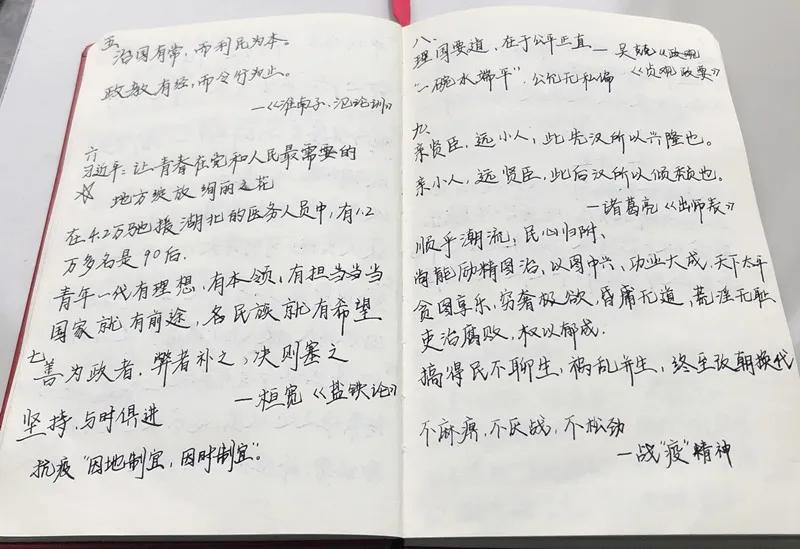 五
治国有常，而利民为本。
政教有经，而令行为上。
—《淮南子·氾论训》
六
习近平：让青春在党和人民最需要的
☆ 地方绽放绚丽之花
在4.2万驰援湖北的医务人员中，有1.2
万多名是90后.
青年一代有理想，有本领，有担当当当
国家就有前途，各民族就有希望
七
善为政者，弊者补之，决则塞之
—桓宽《盐铁论》
坚持，与时俱进
抗疫“因地制宜，因时制宜”。
八、
理国要道，在于公平正直—吴兢《政观
“一碗水端平”，公允无私偏 《贞观政要》
九、
亲贤臣，远小人，此先汉所以兴隆也。
亲小人，远贤臣，此后汉所以倾颓也。
—诸葛亮《出师表》
顺乎潮流，民心归附、
尚能励精图治，以图中兴，功业大成，天下太平
贪图享乐，穷奢极欲，昏庸无道，荒淫无耻
吏治腐败，权以郁成.
搞得民不聊生，祸乱并生，终至改朝换代
不麻痹，不厌战，不松劲
—战“疫”精神